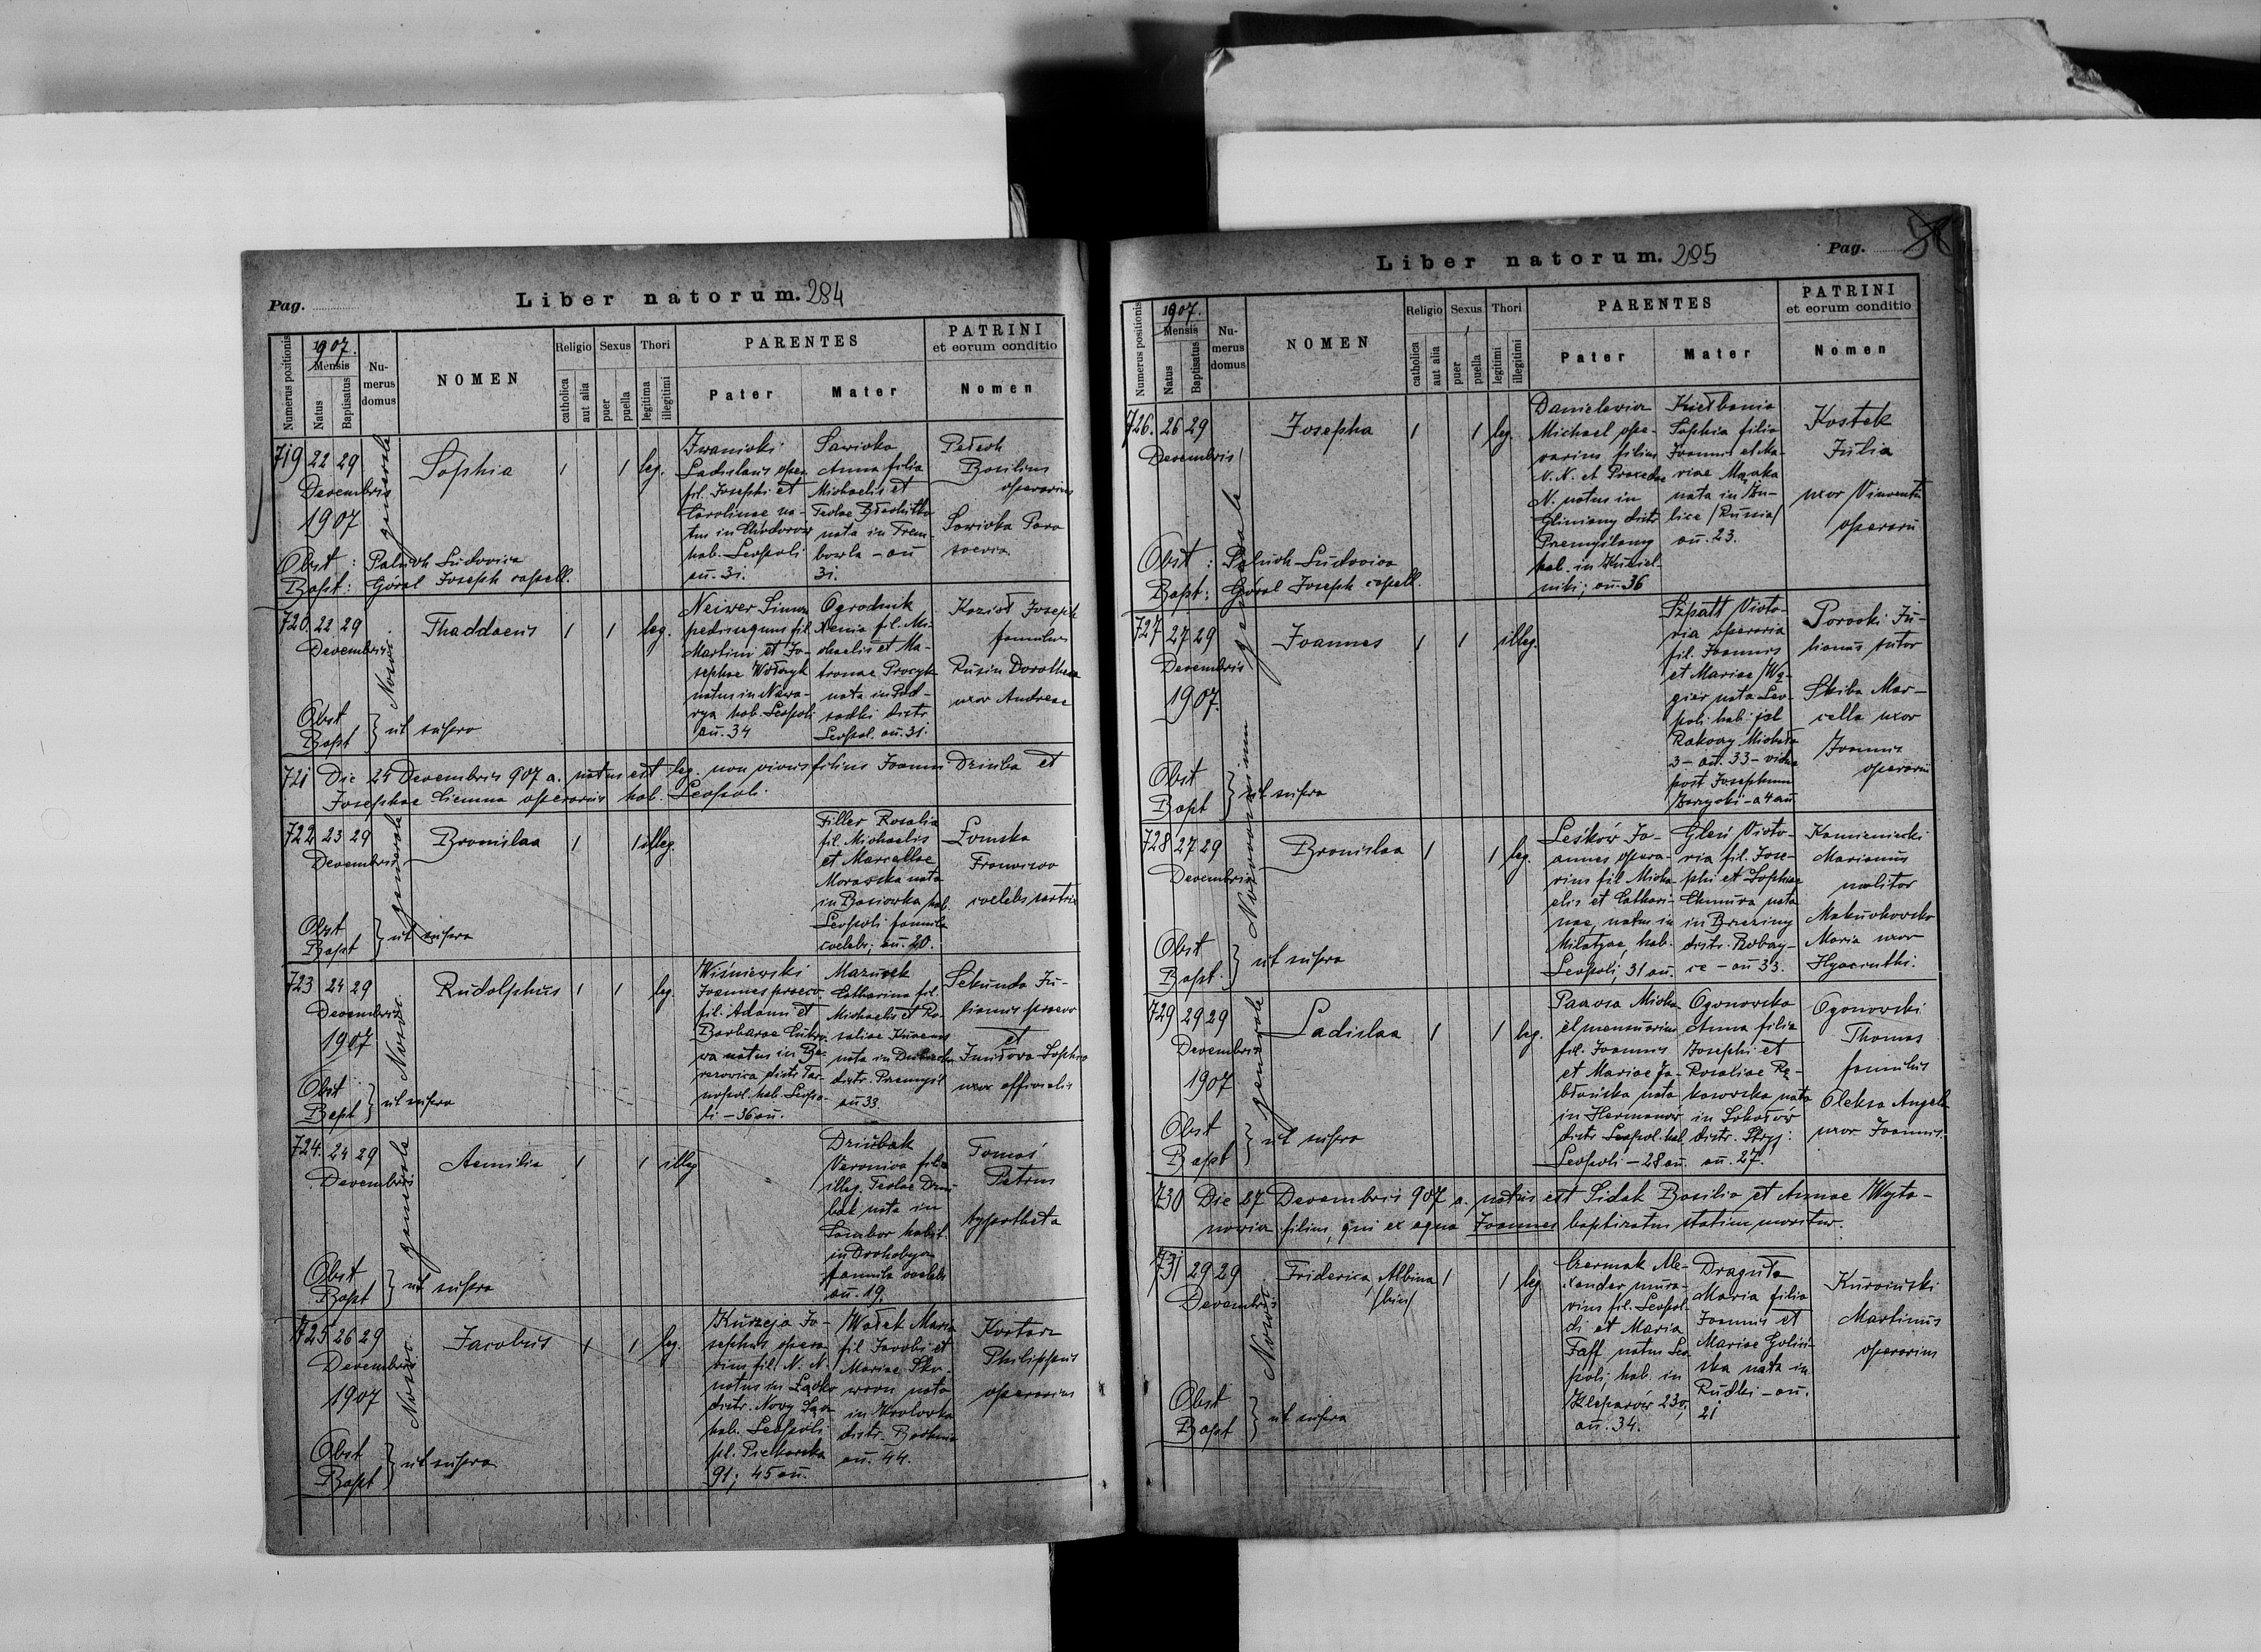 Pag.
Liber natorum. 284
Numerus positionis
1907.
Mensis
Natus
Baptisatus
Nu-
merus
domus
NOMEN
Religio
catholica
aut alia
Sexus
puer
puella
Thori
legitima
illegitimi
PARENTES
Pater
Mater
PATRINI
et eorum conditio
Nomen
719
22 29
Decembris
1907
generale
Sophia
1
1
leg.
Iwanicki
Ladislaus oper.
fil. Josephi et
Carolinae na-
tus in Chodorow
hab. Leopoli
an. 31.
Sawicka
Anna filia
Michaelis et
Teclae
nata in Trem-
bowla - an
31.
Petech
Basilius
operarius
Sawicka Para
socera
Obst : Paluch Ludovica
Bapt : Góral Joseph capell.
720. 22 29
Decembris
Nosoc.
Thaddaeus
1
1
leg.
Neiwer Simon
pedissequus fil.
Martini et Jo-
sephae Wołczyk
natus in Nawa-
rya hab. Leopoli
an. 34
Ogrodnik
Xenia fil. Mi-
chaelis et Ma-
tronae Procyk
nata in Pod-
sadki distr.
Leopol. an. 31.
Kozioł Joseph
famulus
Rusin Dorothea
uxor Andreae
Obst
Bapt } ut supra
721 Die 24 Decembris 907 a. natus est leg. non vivus filius Joannis Dziuba et
Josephae Ciemna operarius hab. Leopoli.
722 23 29
Decembris
generale
Bronislaa
1
1 illeg.
Filler Rosalia
fil. Michaelis
et Marcellae
Morawska nata
in Basiowka hab.
Leopoli famula
coelebs; an. 20.
Lomska
Francisca
coelebs sartrix
Obst
Bapt } ut supra
723 24 29
Decembris
1907
Nosoc.
Rudolphus
1
1
leg.
Wiśniewski
Joannes praeco
fil. Adami et
Barbarae Cukro-
wa natus in Be-
rezowica distr. Tar-
nopol. hab. Leopo-
li - 36 an.
Mazurek
Catharina fil.
Michaelis et Ro-
saliae
nata in
distr. Przemyśl
an 33.
Sekunda Ju-
lianus praeco
et
Sophia
uxor officialis
Obst
Bapt } ut supra
724. 24 29
Decembris
generale
Aemilia
1
1 illeg
Dziubak
Veronica filia
illeg. Teclae Dziu-
bak nata in
Sambor habit.
in Drohobycz
famula coelebs
an. 19.
Tomaś
Petrus
typotheta
Obst
Bapt } ut supra
725 26 29
Decembris
1907
Nosoc.
Jacobus
1
1
leg.
Kurzeja Jo-
sephus opera-
rius fil. N. N.
natus in Łącko
distr. Nowy Sącz
hab. Leopoli
pl. Piekarska
91; 45 an.
Wołek Maria
fil Jacobi et
Mariae Sko-
wron nata
in
distr. Bochnia
an. 44.
Kostarz
Philippus
operarius
Obst
Bapt } ut supra
Liber natorum. 285
Pag.
Numerus positionis
1907.
Mensis
Natus
Baptisatus
Nu-
merus
domus
NOMEN
Religio
catholica
aut alia
Sexus
puer
puella
Thori
legitimi
illegitimi
PARENTES
Pater
Mater
PATRINI
et eorum conditio
Nomen
726. 26 29
Decembris
generale
Josepha
1
1
leg.
Danielewicz
Michael ope-
rarius filius
N. N. et Praxedae
N. natus in
Gliniany distr
Przemyślany
hab. in Kuziel-
niki; an. 36
Kiełbania
Sophia filia
Joannis et Ma-
riae
nata in
lice /Russia/
an. 23.
Kostek
Julia
uxor Vincentii
operarii
Obst : Paluch Ludovica
Bapt : Góral Joseph capell.
727 27 29
Decembris
1907.
Joannes
1
1
illeg.
Szpatt Victo-
ria operaria
fil. Joannis
et Mariae /Wę-
gier nata Leo-
poli hab. pl
Rakovzy Michała
3 - an. 33 - vidua
post Josephum
Zarzycki - a 4 an
Porocki Ju-
lianus sutor
Skiba Mar-
cella uxor
Joannis
operarii
Obst
Bapt } ut supra
728 27 29
Decembris
Bronislaa
1
1
leg.
Leśków Jo-
annes opera-
rius fil Micha-
elis et Cathari-
nae, natus in
Milatycze, hab.
Leopoli, 31 an.
Gleń Victo-
ria fil. Jose-
phi et Sophiae
Chmura nata
in Brzeziny
distr. Ropczy-
ce - an 33.
Kamieniecki
Marianus
molitor
Makuchowska
Maria uxor
Hyacinthi.
Obst
Bapt. } ut supra
729 29 29
Decembris
1907
generale
Ladislaa
1
1
leg.
Michae-
el mensuarius
fil. Joannis
et Mariae Ja-
błońska nata
in Hermanow
distr. Leopol. hab.
Leopoli - 28 an.
Ogonowska
Anna filia
Josephi et
Rosaliae Rę-
kosowska nata
in Sokołów
distr. Stryj:
an. 27.
Ogonowski
Thomas
famulus
Oleksa Angela
uxor Joannis.
Obst
Bapt } ut supra
730 Die 27 Decembris 907 a. natus est Sidak Basilio et Annae Wojta-
nowicz filius, qui ex aqua Joannes baptizatus statim moritur.
731 29 29
Decembris
Nosoc.
Friderica, Albina
/bin/
1
1
leg
Czermak Ale-
xander mura-
rius fil. Leopol-
di et Maria
Faff natus Leo
poli; hab. in
Kleparów 230,
an. 34.
Draguła
Maria filia
Joannis et
Mariae Goliń-
ska nata in
Rudki - an.
21
Kurowski
Martinus
operarius
Obst
Bapt } ut supra